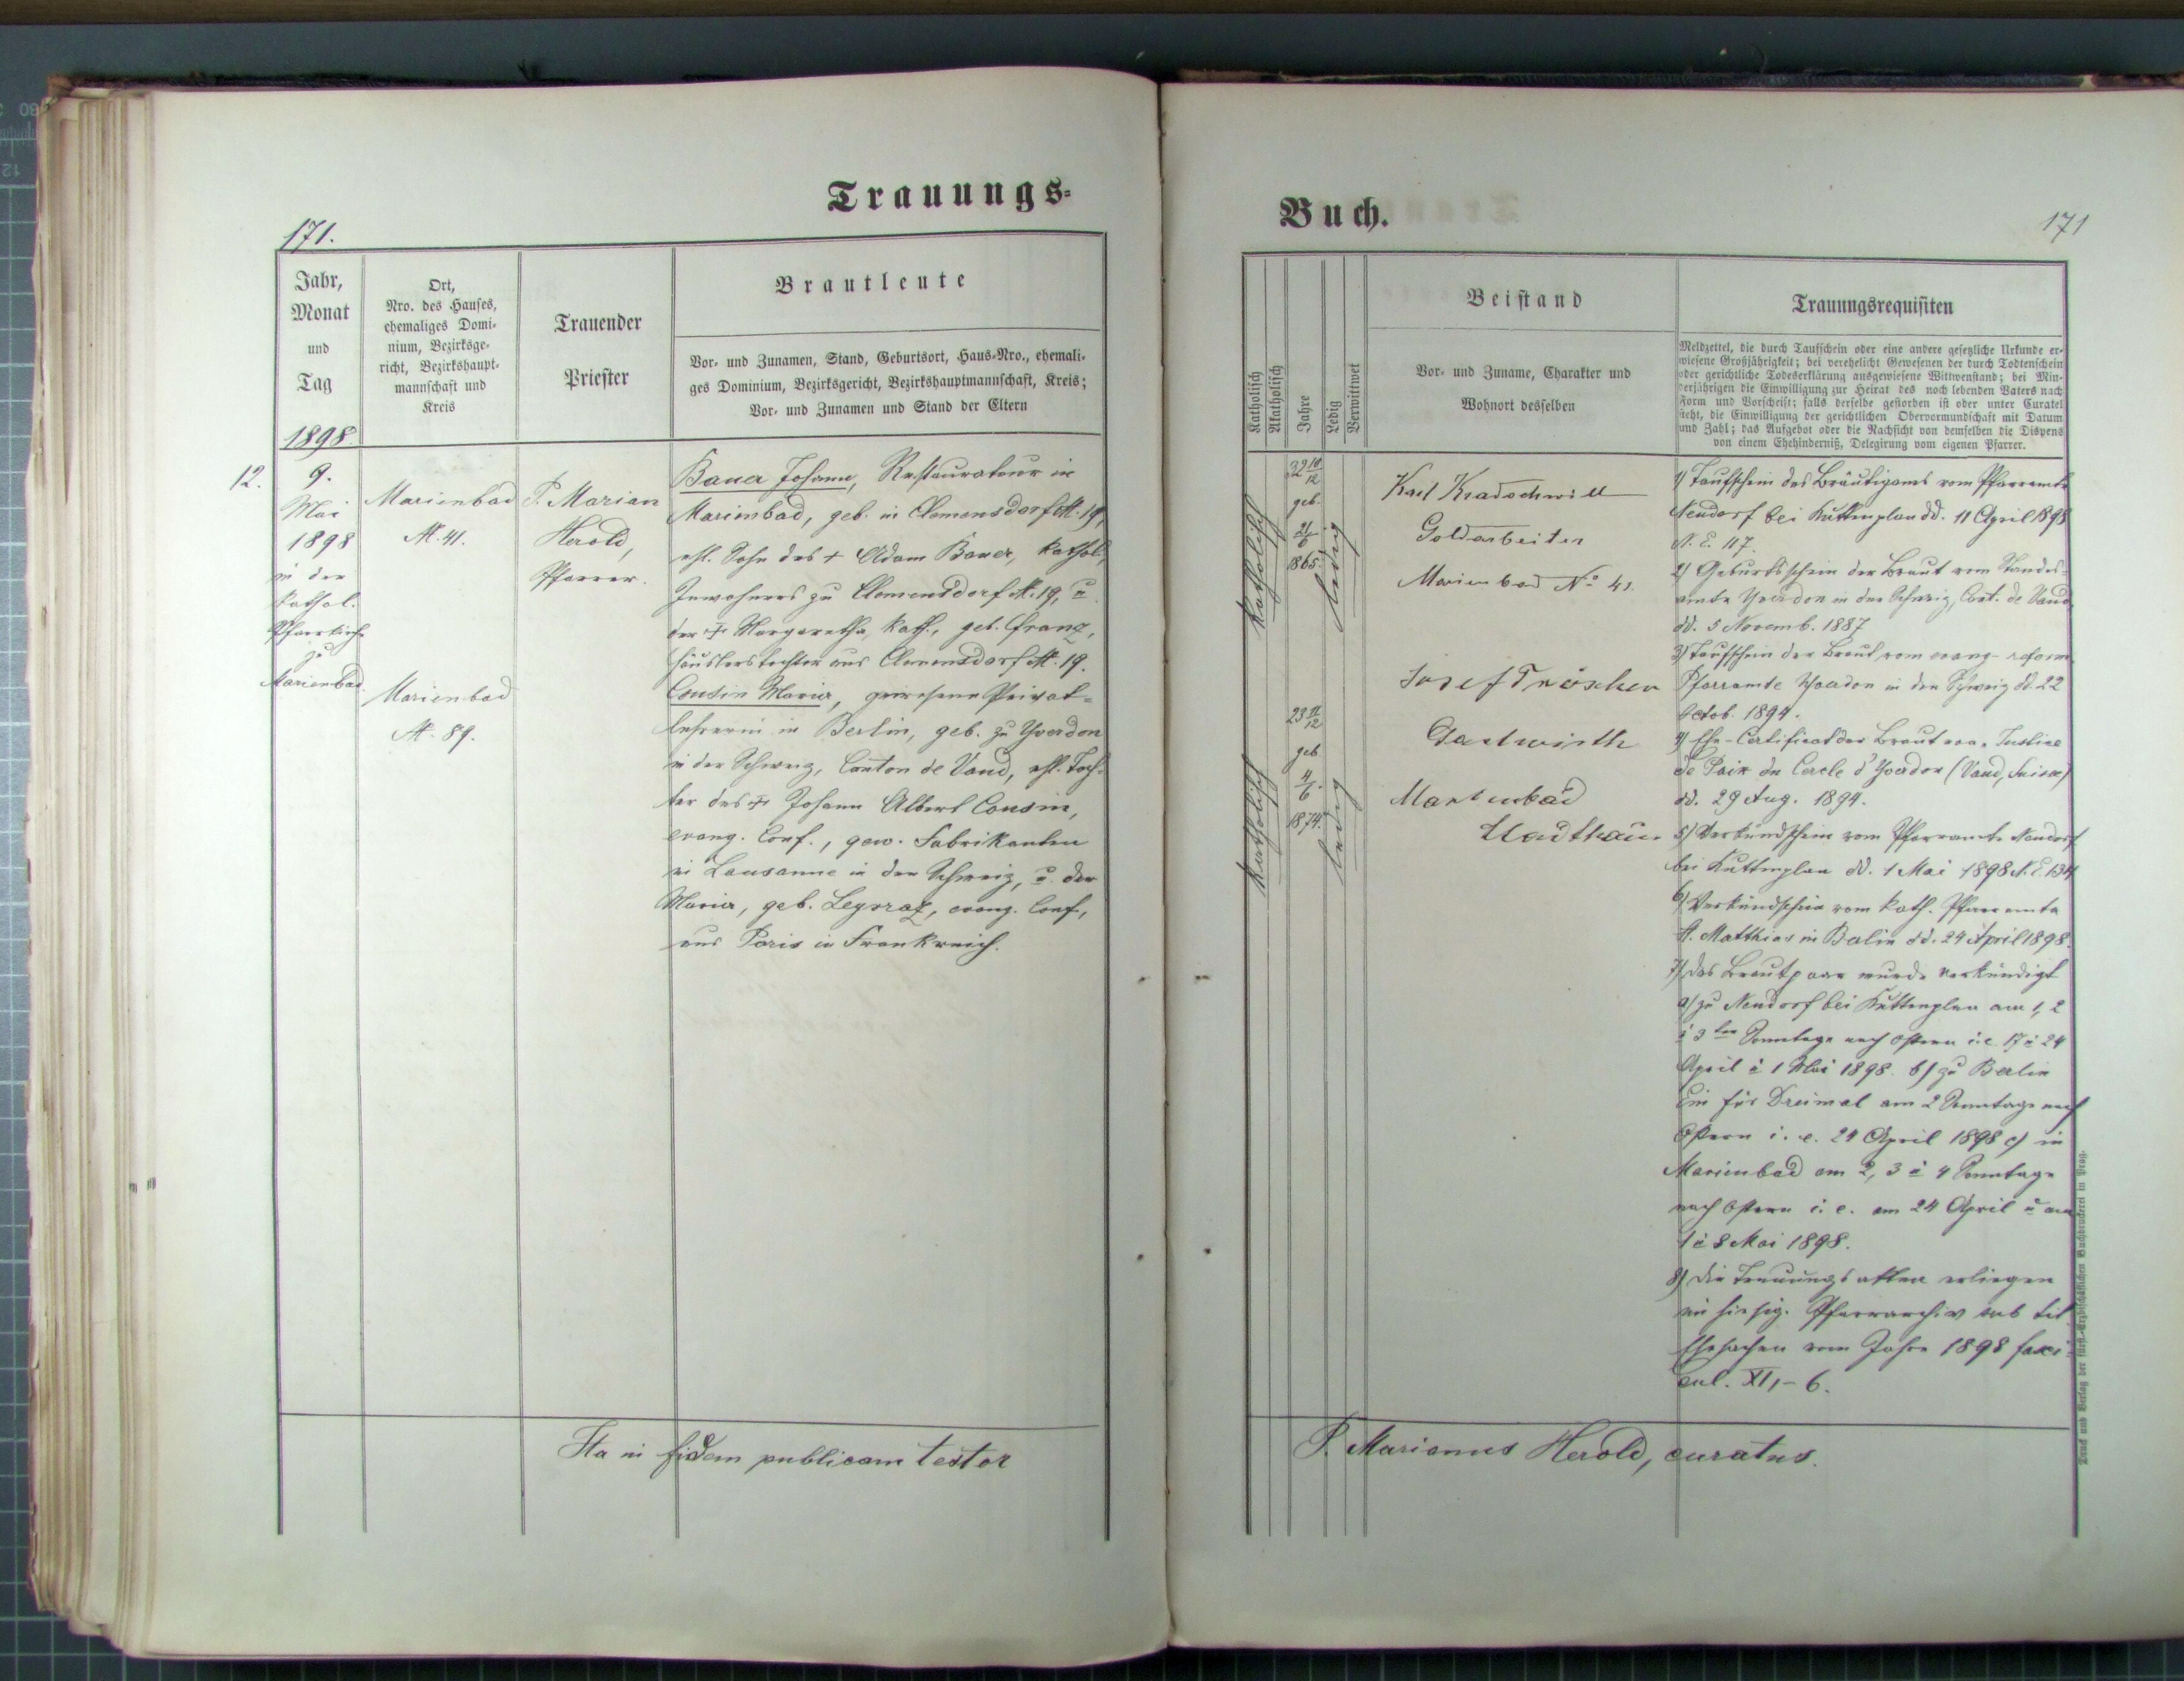 Trauungs-
171.
Jahr,
Monat
und
Tag
1898.
Ort,
Nro. des Hauses,
ehemaliges Domi-
nium, Bezirksge-
richt, Bezirkshaupt-
mannschaft und
Kreis
Trauender
Priester
Brautleute
Vor- und Zunamen, Stand, Geburtsort, Haus-Nro., ehemali-
ges Dominium, Bezirksgericht, Bezirkshauptmannschaft, Kreis;
Vor- und Zunamen und Stand der Eltern
12.
9.
Mai
1898
in der
kathol.
Pfarrkirche
zu
Marienbad.
Marienbad
N. 41.
Marienbad
N. 89.
P. Marian
Herold,
Pfarrer.
Bauer Johann, Restaurateur in
Marienbad, geb. in Clemensdorf N. 19,
ehl. Sohn des + Adam Bauer, kathol,
Inwohners zu Clemensdorf N. 19, u.
der + Margaretha, kath., geb. Franz,
Häuslerstochter aus Clemensdorf N. 19.
Cousin Maria, gewesene Privat-
lehrerin in Berlin, geb. zu Yverdon
in der Schweiz, Canton de Vaud, ehl. Toch-
ter des + Johann Albert Cousin,
evang. Conf., gew. Fabrikanten
in Lausanne in der Schweiz, u. der
Maria, geb. Leyvraz, evang. Conf,
aus Paris in Frankreich.
Ita in fidem publicam testor
Buch.
171
Katholisch
Akatholisch
Jahre
Ledig
Verwittwet
Beistand
Vor- und Zuname, Charakter und
Wohnort desselben
Trauungsrequisiten
Meldzettel, die durch Taufschein oder eine andere gesetzliche Urkunde er-
wiesene Großjährigkeit; bei verehelicht Gewesenen der durch Todtenschein
oder gerichtliche Todeserklärung ausgewiesene Wittwenstand; bei Min-
derjährigen die Einwilligung zur Heirat des noch lebenden Vaters nach
Form und Vorschrift; falls derselbe gestorben ist oder unter Curatel
steht, die Einwilligung der gerichtlichen Obervormundschaft mit Datum
und Zahl; das Aufgebot oder die Nachsicht von demselben die Dispens
von einem Ehehinderniß, Delegirung vom eigenen Pfarrer.
katholisch
32 10/12
geb.
21/6
1865.
ledig
Karl Kradschwill
Goldarbeiter
Marienbad No 41.
katholisch
23 11/12
geb
4/6.
1874.
ledig
Josef Tröscher
Gastwirth
Marienbad
Stadthaus
1) Taufschein des Bräutigams vom Pfarramte
Neudorf bei Kuttenplan dd. 11 April 1898
N. E. 117.
2) Geburtsschein der Braut vom Standes-
amte Yverdon in der Schweiz, Cant. de Vaud
dd. 5 Novemb. 1887
3) Taufschein der Braut vom evang-reform
Pfarramte Yverdon in der Schweiz dd. 22
Octob. 1894.
4) Ehe-Certificat der Braut von Justice
de Paix du Cercle d'Yverdon (Vaud, Suisse)
dd. 29 Aug. 1894.
5) Verkündschein vom Pfarramte Neudorf
bei Kuttenplan dd. 1 Mai 1898 N. E. 134
6) Verkündschein vom kath. Pfarramte
St. Matthias in Berlin dd. 24 April 1898.
7) Das Brautpaar wurde verkündigt
a) zu Neudorf bei Kuttenplan am 1, 2
u 3ten Sonntage nach Ostern i.e 17 u 24
April u 1 Mai 1898. b) zu Berlin
Ein für Dreimal am 2 Sonntage nach
Ostern i. e. 24 April 1898 c) in
Marienbad am 2, 3 u 4 Sonntage
nach Ostern i. e. am 24 April u am
1 u 8 Mai 1898.
8) Die Trauungsakten erliegen
im hiesig. Pfarrarchiv sub tit
Ehesachen vom Jahre 1898 fasci-
cul. XI,-6.
P. Marianus Herold, curatus.
Druck und Verlag der fürst-erzbischöflichen Buchdruckerei in Prag.